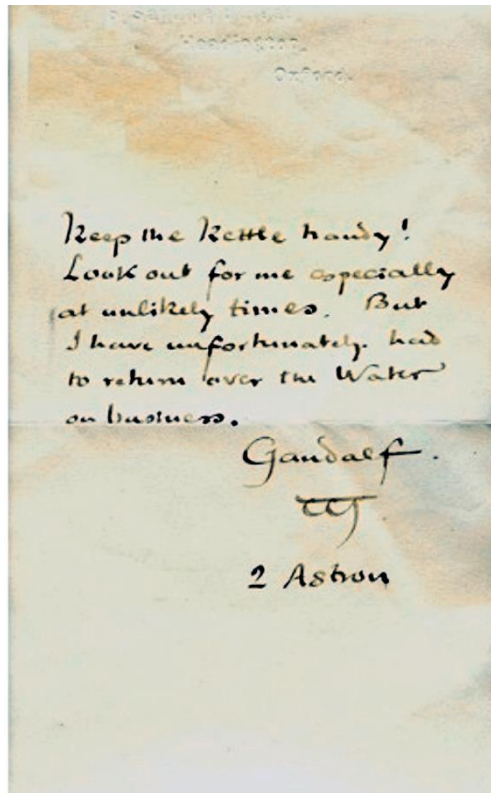 Headington,
Oxford.
Keep the kettle handy!
Look out for me especially
at unlikely times. But
I have unfortunately had
to return over the Water
on business.
Gandalf.
2 Astron